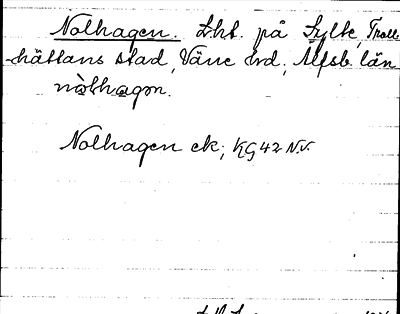 Nolhagen. Lht. på Sylte, Troll-
hättans stad, Väne hd, Älfsb. län
nòlhagən.
Nolhagen ek; KG42 N.V.